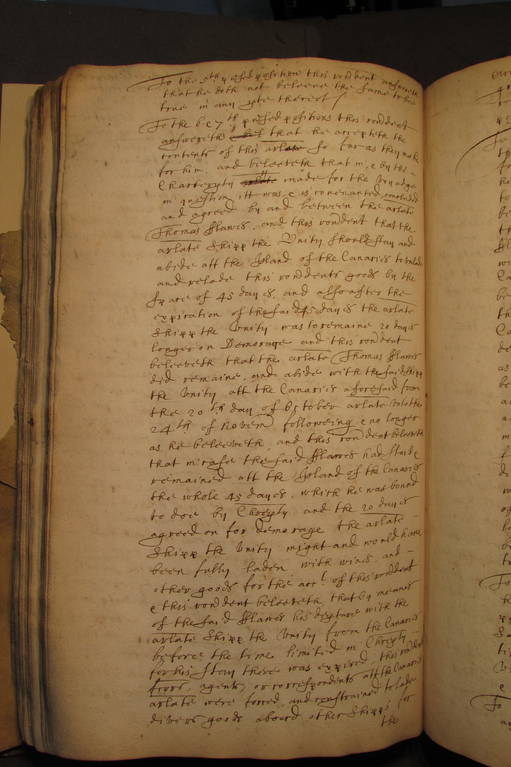 To the 6th position this rondent answereth
that he doth not beleeve the same to bee
true in any pte thereof
To the 7th positions this rondent
answereth that he accepteth the
contents of this arlate so far as they make
for him, and beleeveth that in & by the
Charterpty made for the voyage
in question itt was & is convenanted concluded
and agreed by and betweene the arlate
Thomas Hawes, and this rondent that the
arlate shipp the Unity should stay and
abide att the Island of the Canaries to unlade
and relade this rondents goods by the
space of 45 dayes, and alsoe after the
expiration of the said 45 dayes the arlate
shipp the Unity was to remaine 20 dayes
longer on Demorage and this rondent
beleeveth that the arlate Thomas Hawes
did remaine, and abide with the said shipp
the Unity att the Canaries aforesaid from
the 20th day of October arlate unto the
24th of Novem following & no longer
as he beleeveth, and this rondent beleeveth
that in case the said Hawes had staid &
remained att the Island of the Canaries
the whole 45 dayes, which he was bound
to doe by Chrepty and the 20 dayes
agreed on for demorage the arlate
shipp the Unity might and would have
been fully laden with wines and
other goods for the acct of this rondent
& this rondent beleeveth that by meanes
of the said Hawes his depture with the
arlate shipp the Unity from the Canaries
before the time limited in Chrepty
for his stay there was expired this rondents
ffcors, agents, or correspondents att the Canaries
arlate were forced, and constrained to lade
divers goods aboard other shipps for
the